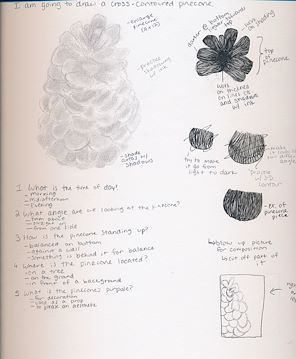 I am going to draw a cross-contoured pinecone.
-enlarge
pinecone
darker @ bottom
light towards
top
work on shading
top of
pinecone
practice
shadowing
ink
work
on thickness
on lines cs
and shadows
w/ ink
shade
areas w/
shadows
try to make
it go from
light to dark
different
angles
practice
w/ 3D
contour
pt. of
pinecone
1 What is the time of day?
-morning
-midafternoon
-evening
2 What angle are we looking at the pinecone?
-from above
-from one side
3 How is the pinecone standing up?
-balanced on bottom
-against a wall
-something is behind it for balance
4 Where is the pinecone located?
-on a tree
-on the ground
-in front of a background
5 What is the pinecones purpose?
-for decoration
-used as a prop
-to make an aesthetic
blow up picture
for composition
cut off part
of it